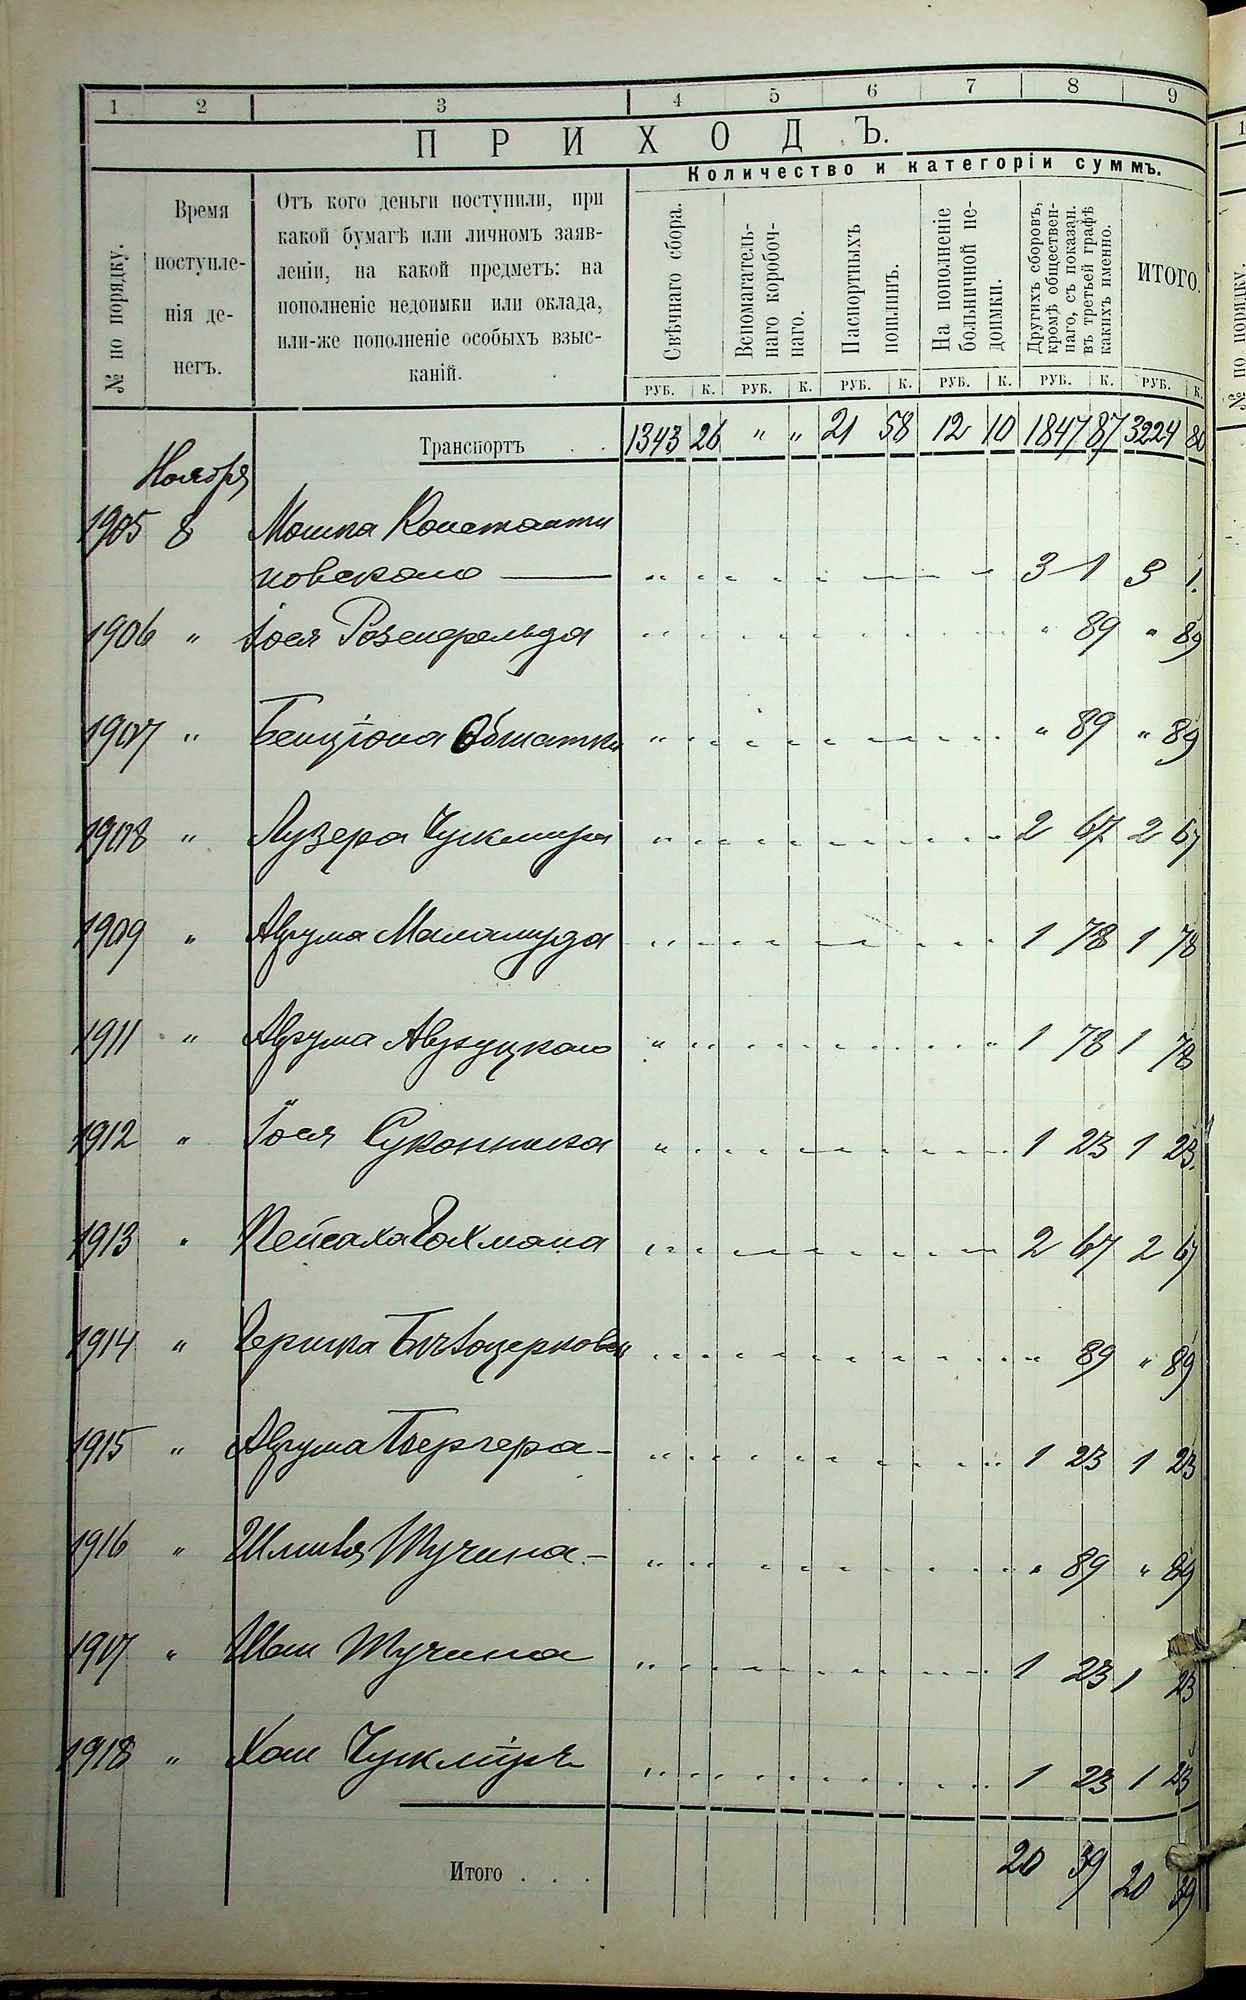 1 2 3 4 5 6 7 8 9
ПРИХОДЪ.
№ по порядку.
Время поступле-
нія де-
негъ.
Отъ кого деньги поступили, при
какой бумагѣ или личномъ заяв-
леніи, на какой предметъ: на
пополненіе недоимки или оклада,
или-же пополненіе особыхъ взыс-
каній.
Количество и категоріи суммъ.
Свѣчнаго сбора.
Вспомагатель-
наго коробоч-
наго.
Паспортныхъ
пошлинъ.
На пополненіе
больничной не-
доимки.
Другихъ сборовъ,
кромѣ обществен-
наго, съ показан.
въ третьей графѣ
какихъ именно.
ИТОГО.
РУБ. К. РУБ. К. РУБ. К. РУБ. К. РУБ. К. РУБ. К.
Транспортъ . . 1343 26 " " 21 58 12 10 1847 87 3224 80
Ноября
1905 8 Мошка Константи
новскаго — 3 1 3 1.
1906 " Іося Розенфельда " 89 " 89
1907 " Бенціона " 89 " 89
1908 " Лузера 2 67 2 67
1909 " Аврума Маламуда 1 78 1 78
1911 " Аврума 1 78 1 78
1912 " Іося Суконника 1 23 1 23.
1913 " Пейсаха Гохмана 2 67 2 67
1914 " Гершка Бѣлоцерковск " 89 " 89
1915 " Аврума Бергера — 1 23 1 23
1916 " Шмиля Тучина — " 89 " 89
1917 " Тучина 1 23 1 23
1918 " 1 23 1 23
Итого . . . 20 39 20 39